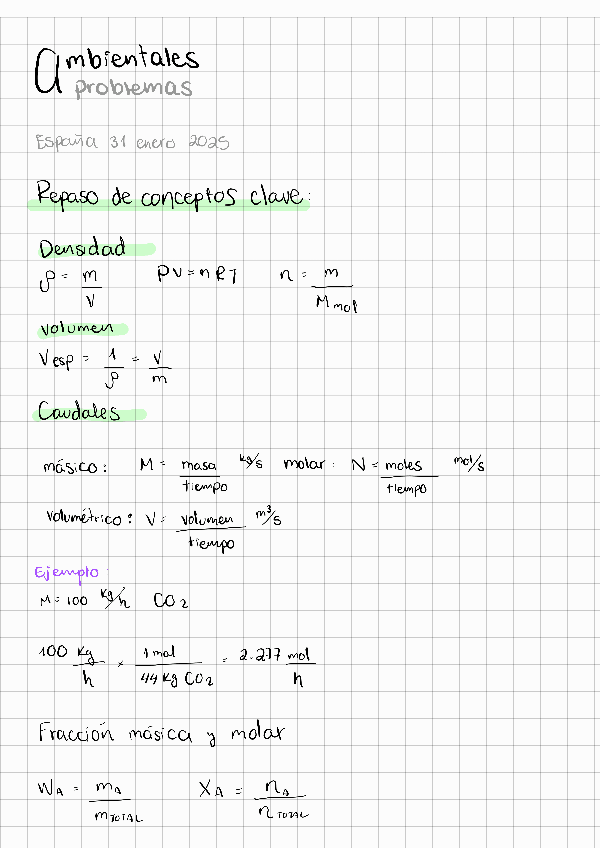 Ambientales
problemas
España 31 enero 2025
Repaso de conceptos clave:
Densidad
ρ = m/V    PV = nRT    n = m/M mol
volumen
V esp = 1/ρ = V/m
Caudales
másico: M = masa/tiempo kg/s molar: N = moles/tiempo mol/s
volumétrico: V = volumen/tiempo m³/s
Ejemplo:
M = 100 kg/h CO₂
100 kg/h × 1 mol/44 kg CO₂ = 2.277 mol/h
Fracción másica y molar
W_A = m_A/m_TOTAL    X_A = n_A/n_TOTAL